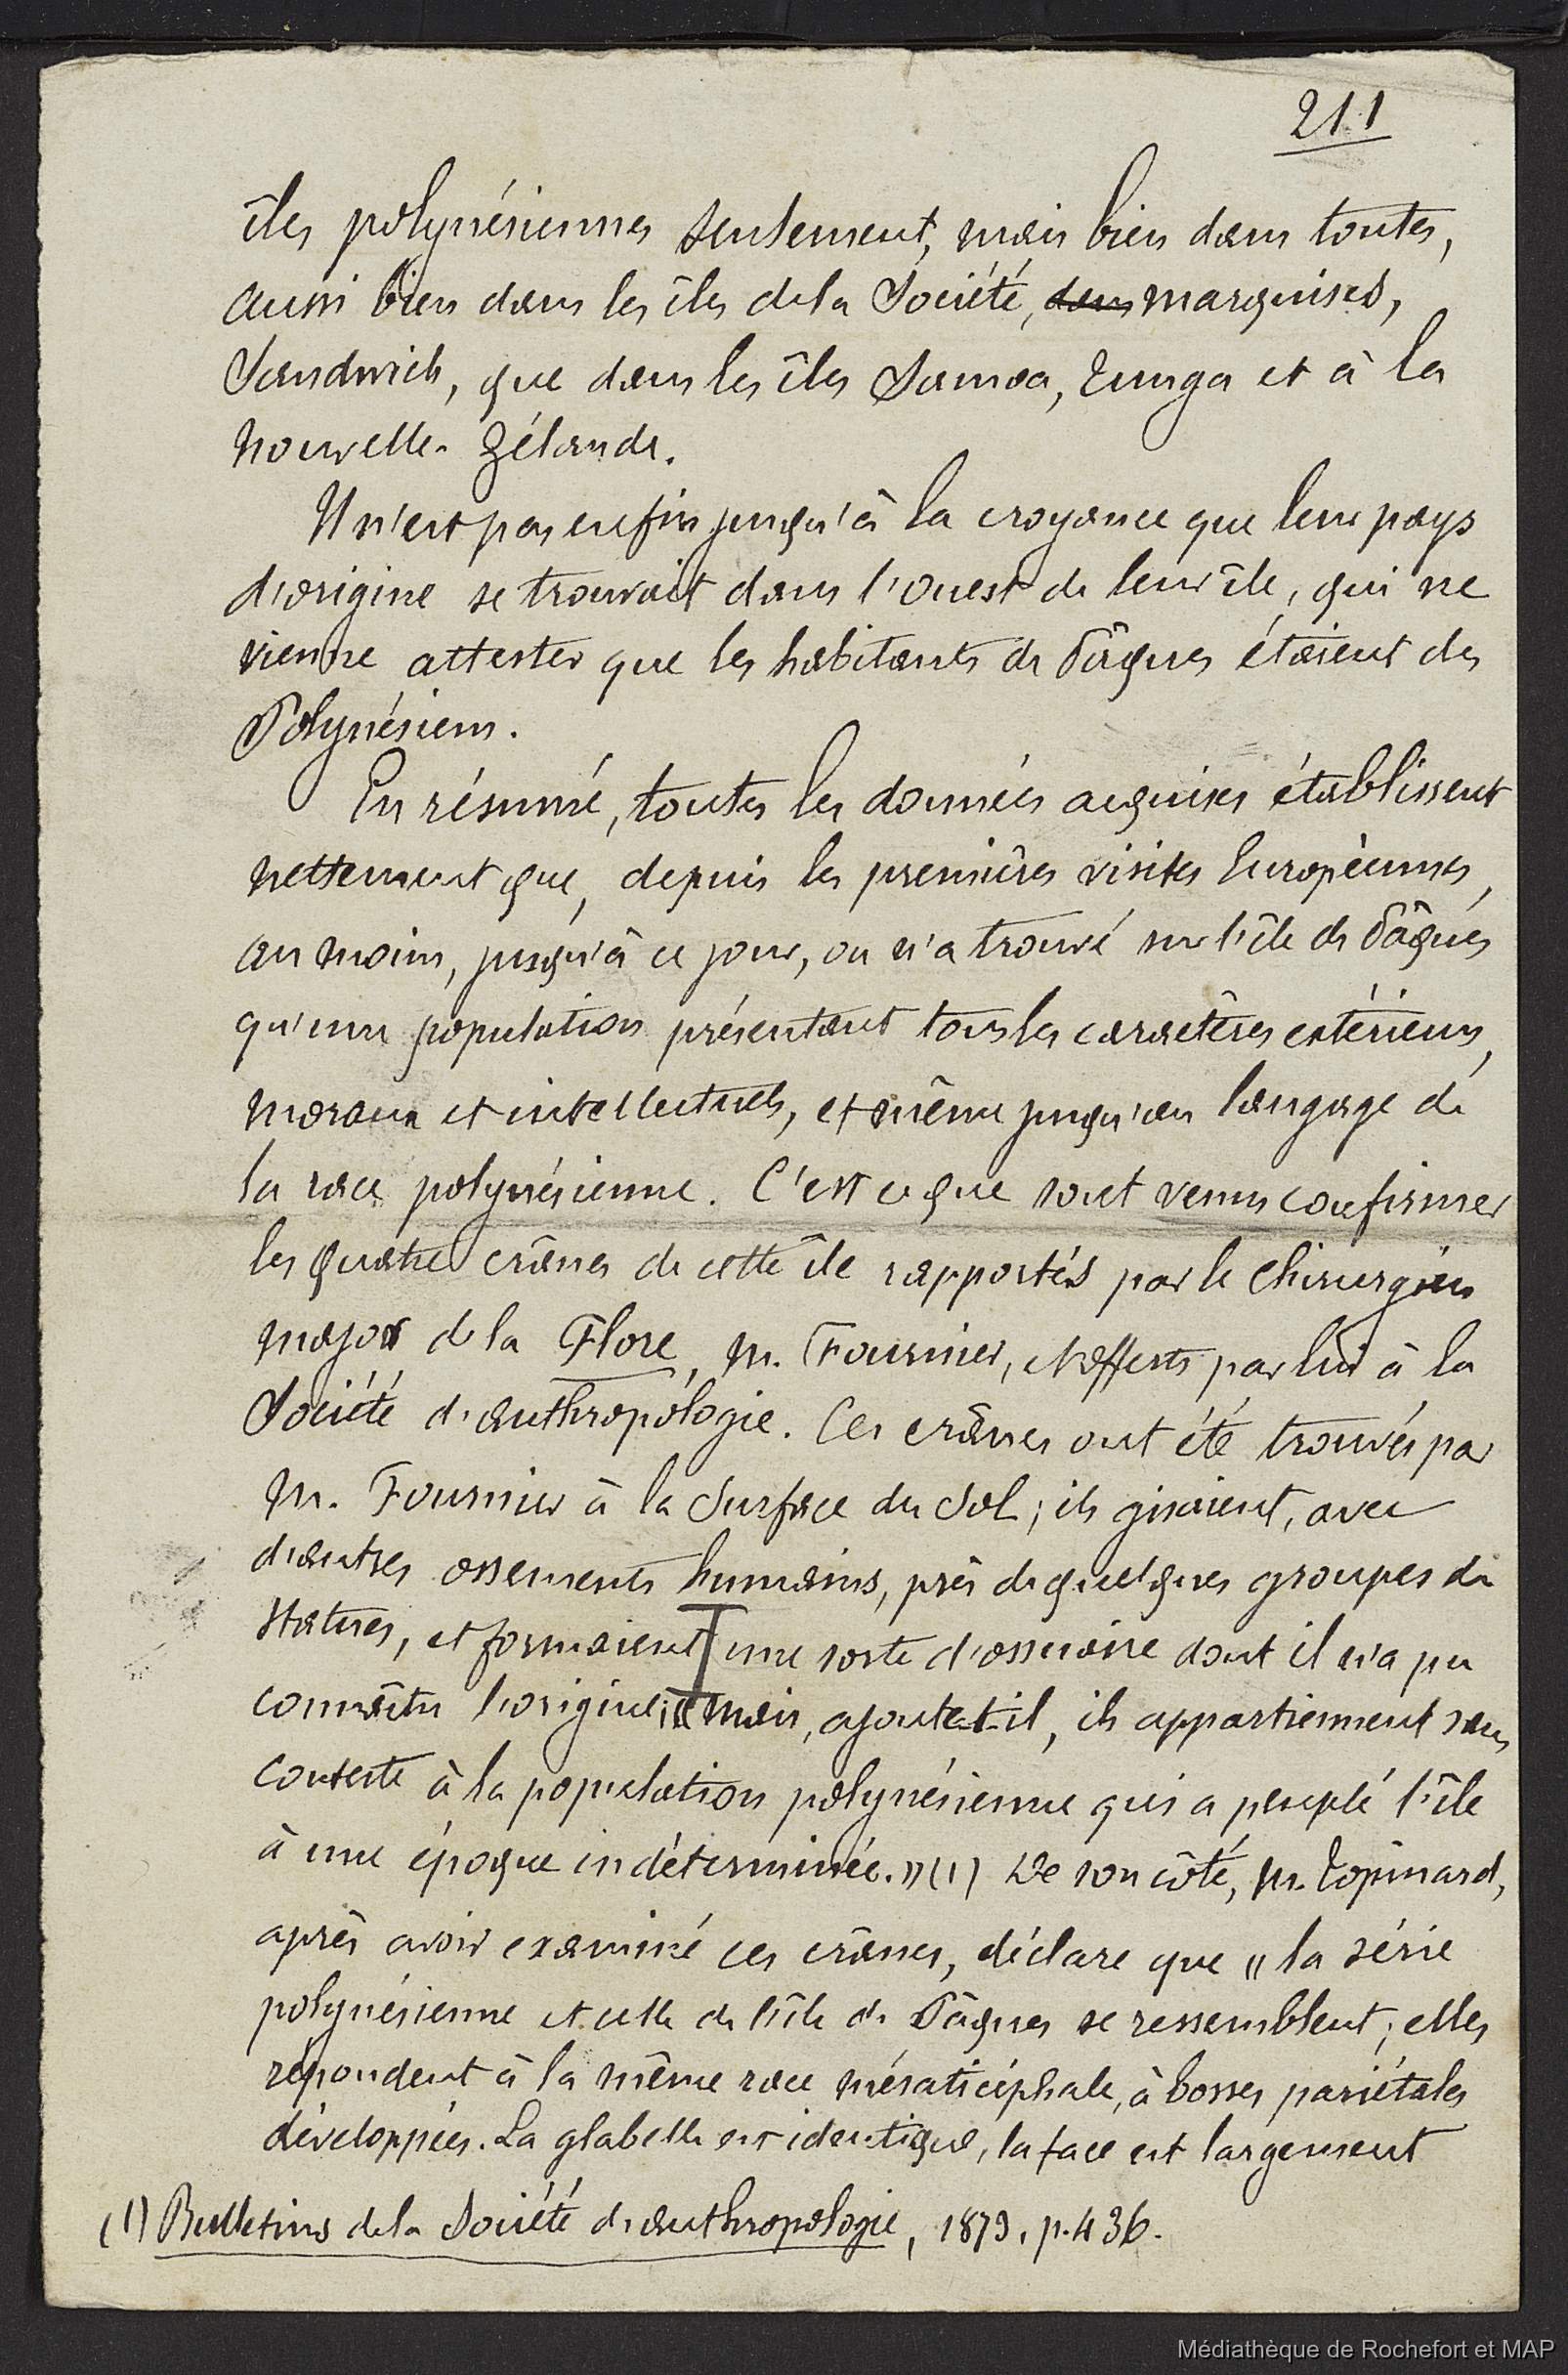 211
îles polynésiennes seulement, mais bien dans toutes,
aussi bien dans les îles de la Société, marquises,
Sandwich, que dans les îles Samoa, Tunga et à la
nouvelle-Zélande.
Il n'est pas enfin jusqu'à la croyance que leur pays
d'origine se trouvait dans l'ouest de leur île, qui ne
vienne attester que les habitants de Pâques étaient des
Polynésiens.
En résumé, toutes les données acquises établissent
nettement que, depuis les premières visites Européennes,
au moins, jusqu'à ce jour, on n'a trouvé sur l'île de Pâques
qu'une population présentant tous les caractères extérieurs,
moraux et intellectuels, et même jusqu'au langage de
la race polynésienne. C'est ce que sont venus confirmer
les quatre crânes de cette île rapportés par le chirurgien
major de la Flore, M. Fournier, et offerts par lui à la
Société d'anthropologie. Ces crânes ont été trouvés par
M. Fournier à la surface du sol ; ils gisaient, avec
d'autres ossements humains, près de quelques groupes de
statues, et formaient une sorte d'ossuaire dont il n'a pu
connaître l'origine ; « mais, ajoute-t-il, ils appartiennent sans
conteste à la population polynésienne qui a peuplé l'île
à une époque indéterminée. » (1) De son côté, M. Topinard,
après avoir examiné ces crânes, déclare que « la série
polynésienne et celle de l'île de Pâques se ressemblent ; elles
répondent à la même race mésaticéphale, à bosses pariétales
développées. La glabelle est identique, la face est largement
(1) Bulletins de la Société d'anthropologie, 1873, p. 436.
Médiathèque de Rochefort et MAP